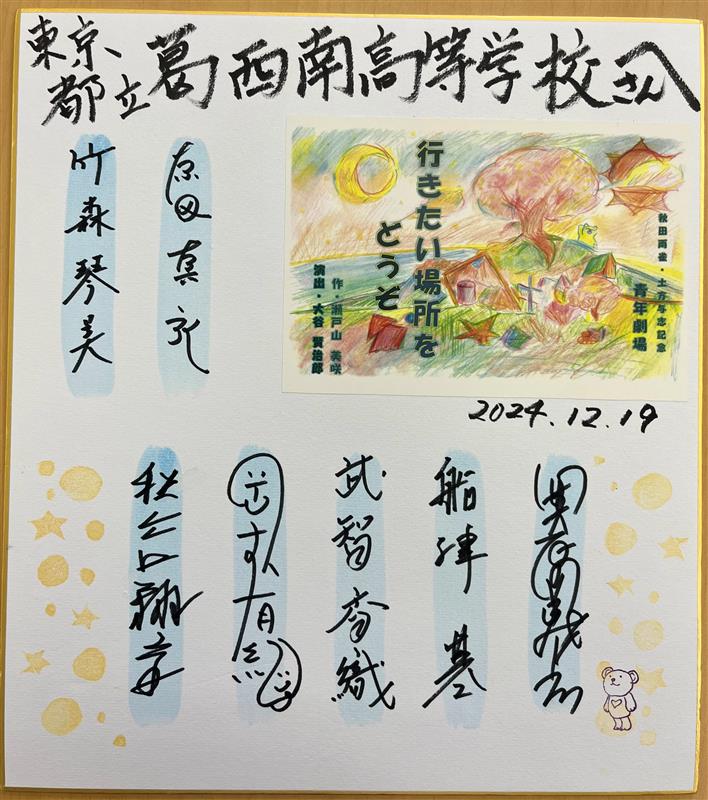 東京都立葛西南高等学校さんへ
秋田雨雀・土方与志記念
青年劇場
行きたい場所を
どうぞ
作・瀬戸山 美咲
演出・大谷 賢治郎
原田真衣
竹森琴美
2024.12.19
船津基
武智香織
秋谷翔音